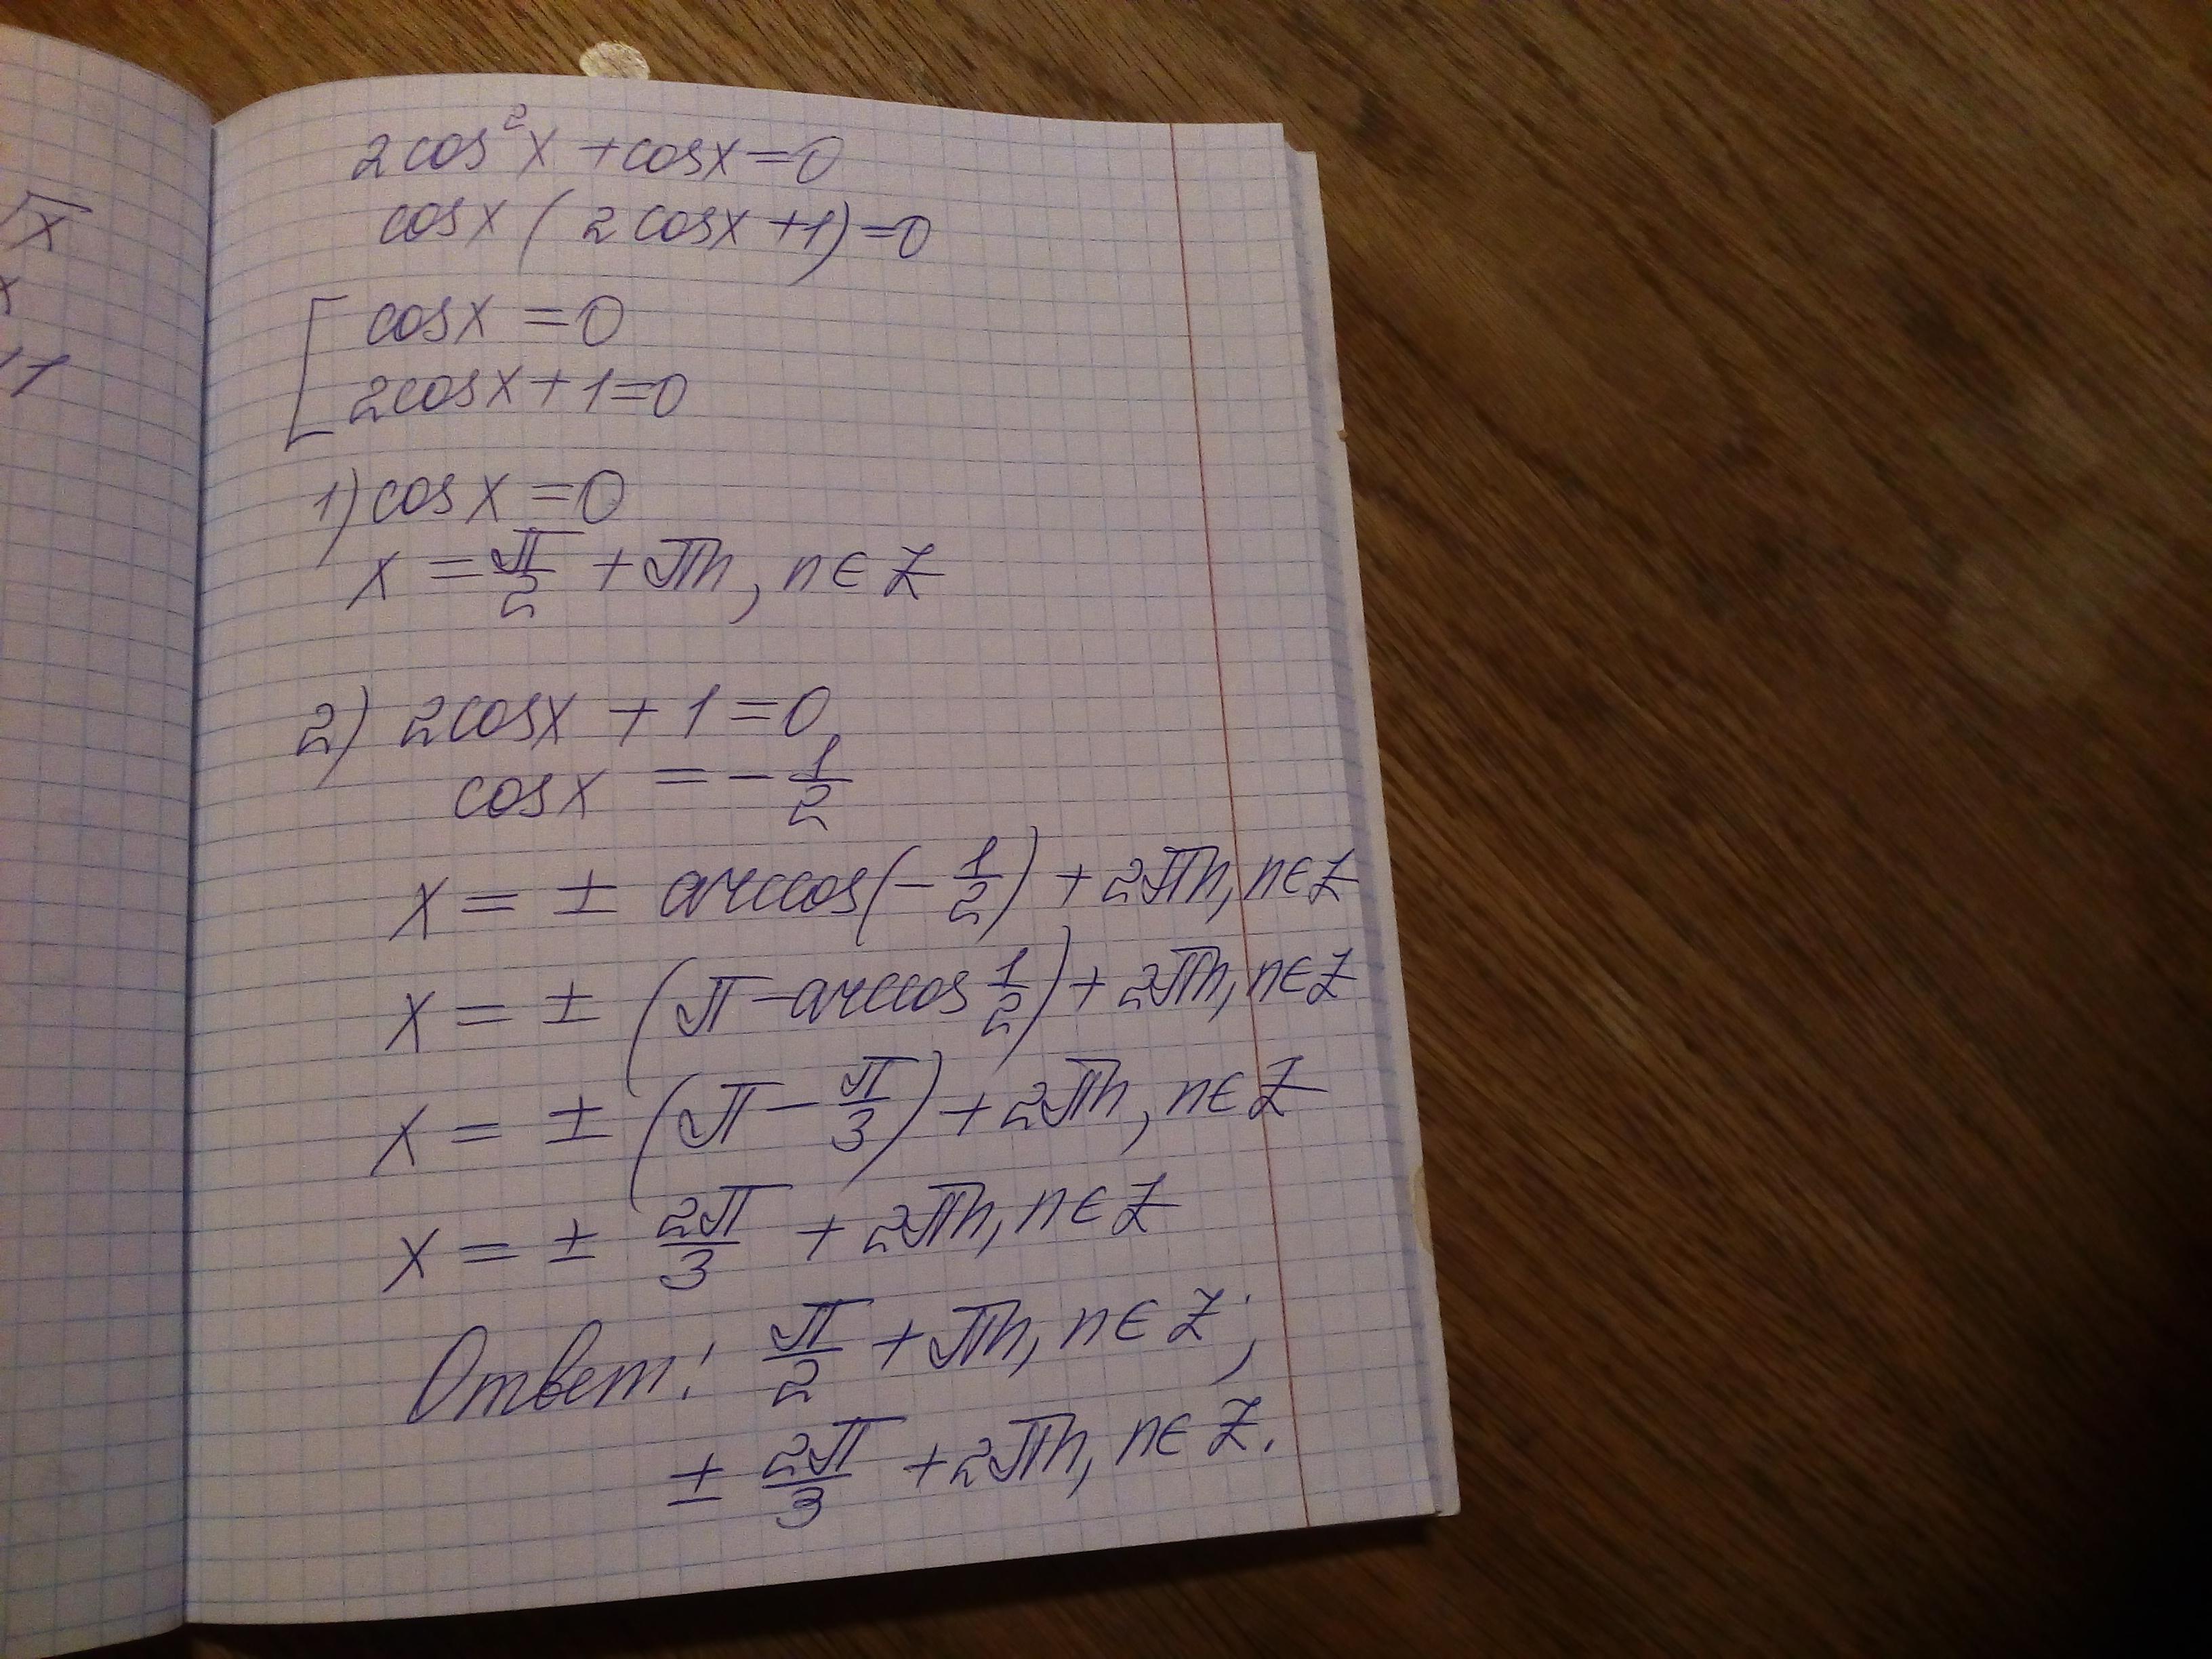 √x
x
11
2cos²x + cosx = 0
cosx ( 2cosx + 1) = 0
[ cosx = 0
2cosx + 1 = 0
1) cosx = 0
x = π/2 + πn, n ∈ Z
2) 2cosx + 1 = 0
cosx = - 1/2
x = ± arccos(- 1/2) + 2πn, n ∈ Z
x = ± (π - arccos 1/2) + 2πn, n ∈ Z
x = ± (π - π/3) + 2πn, n ∈ Z
x = ± 2π/3 + 2πn, n ∈ Z
Ответ: π/2 + πn, n ∈ Z;
± 2π/3 + 2πn, n ∈ Z.